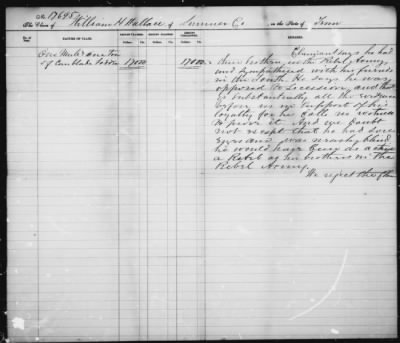 No. 17695
The Claim of William H Wallace of Sumner Co in the State of Tenn
No. of Item.
NATURE OF CLAIM.
AMOUNT CLAIMED.
AMOUNT ALLOWED.
AMOUNT DISALLOWED.
REMARKS.
Dollars. Cts. Dollars. Cts. Dollars. Cts.
One Mule &
17000 17000
Claimant says he had
brothers in the Rebel Army
and sympathized with his friends
in the South. He says he was
opposed to Secession, and that
is substantially all the evidence
before us in support of his
loyalty for he calls no witness
to prove it. And we doubt
not except that he had sore
Eyes and was nearly blind
he would have been as
a Rebel as his brothers in the
Rebel Army.
We reject the